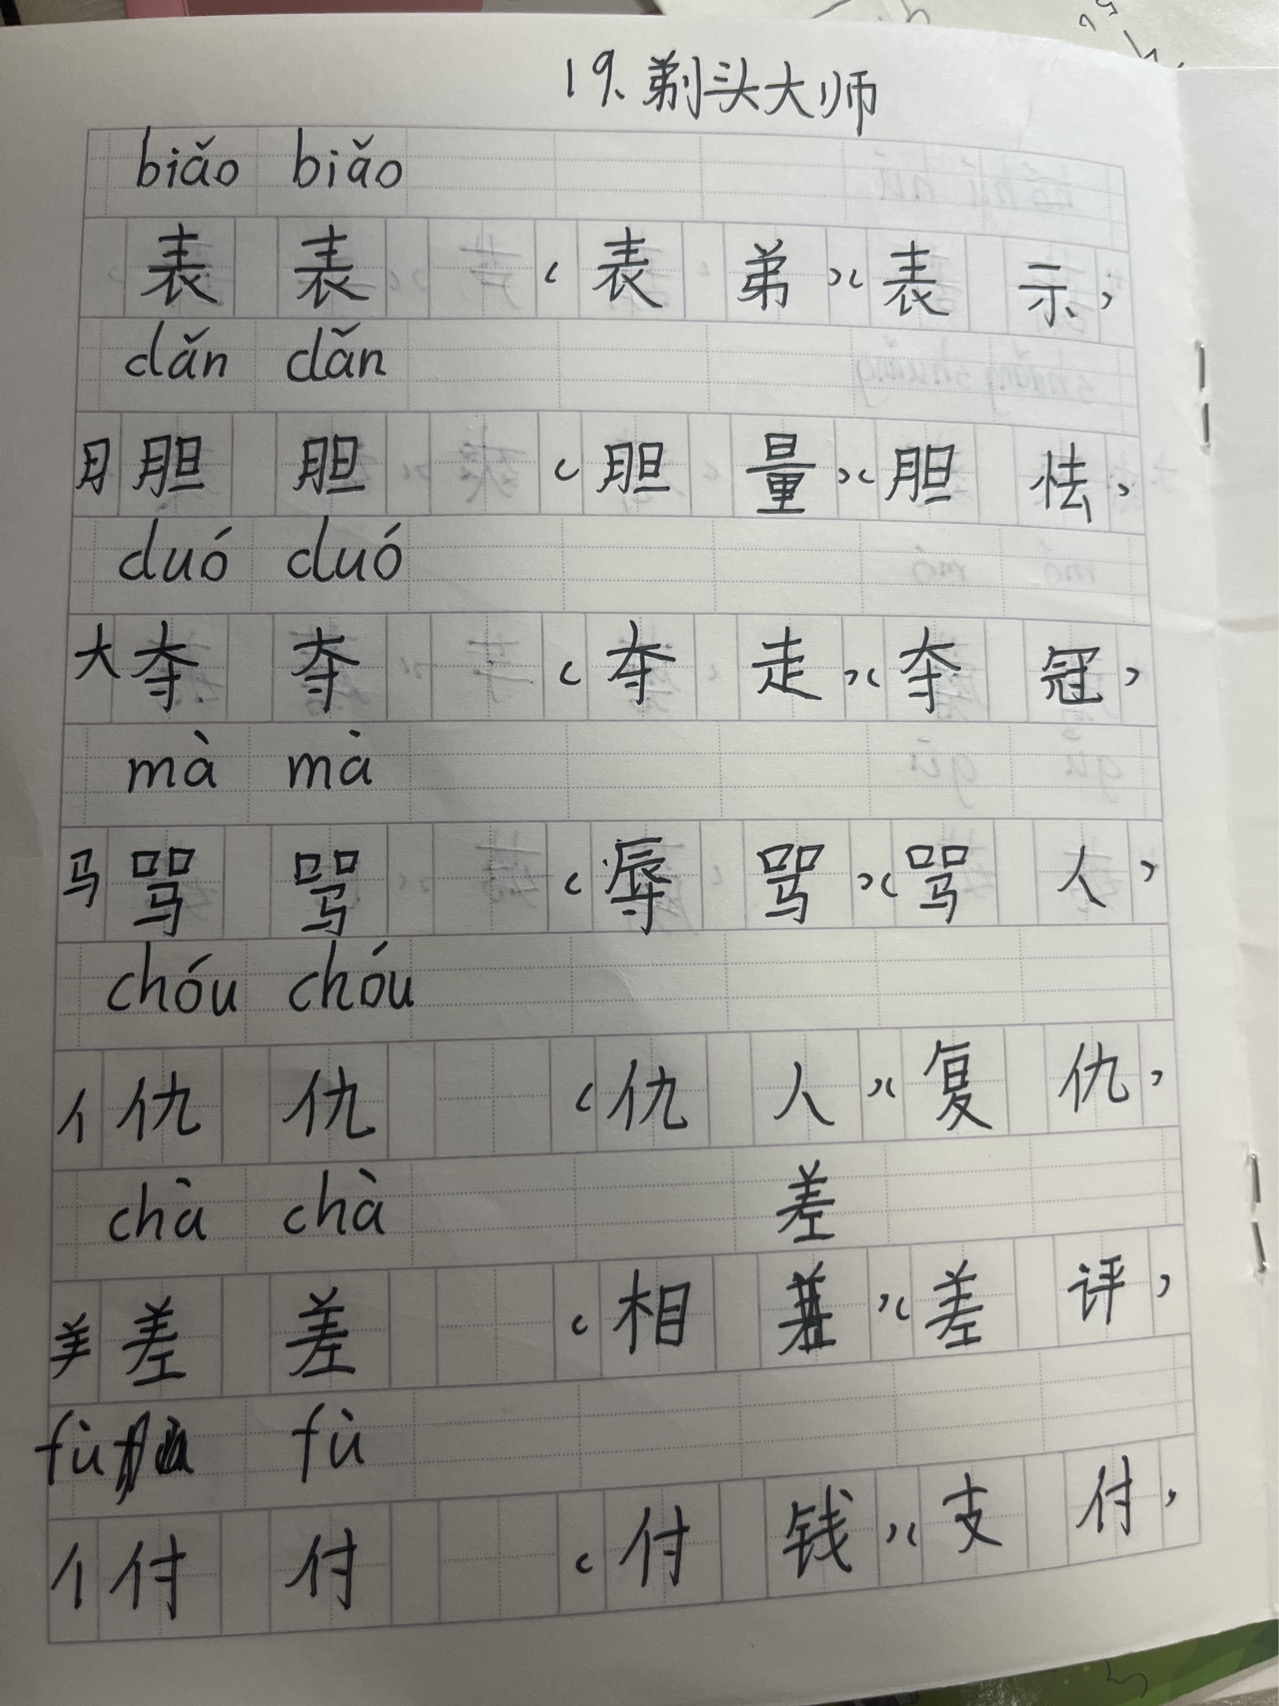 19.剃头大师
biǎo biǎo
表 表 (表 弟)(表 示)
dǎn dǎn
月 胆 胆 (胆 量)(胆 怯)
duó duó
大 夺 夺 (夺 走)(夺 冠)
mà mà
马 骂 骂 (辱 骂)(骂 人)
chóu chóu
亻 仇 仇 (仇 人)(复 仇)
chà chà 差
羊 差 差 (相 )(差 评)
fù fù
亻 付 付 (付 钱)(支 付)